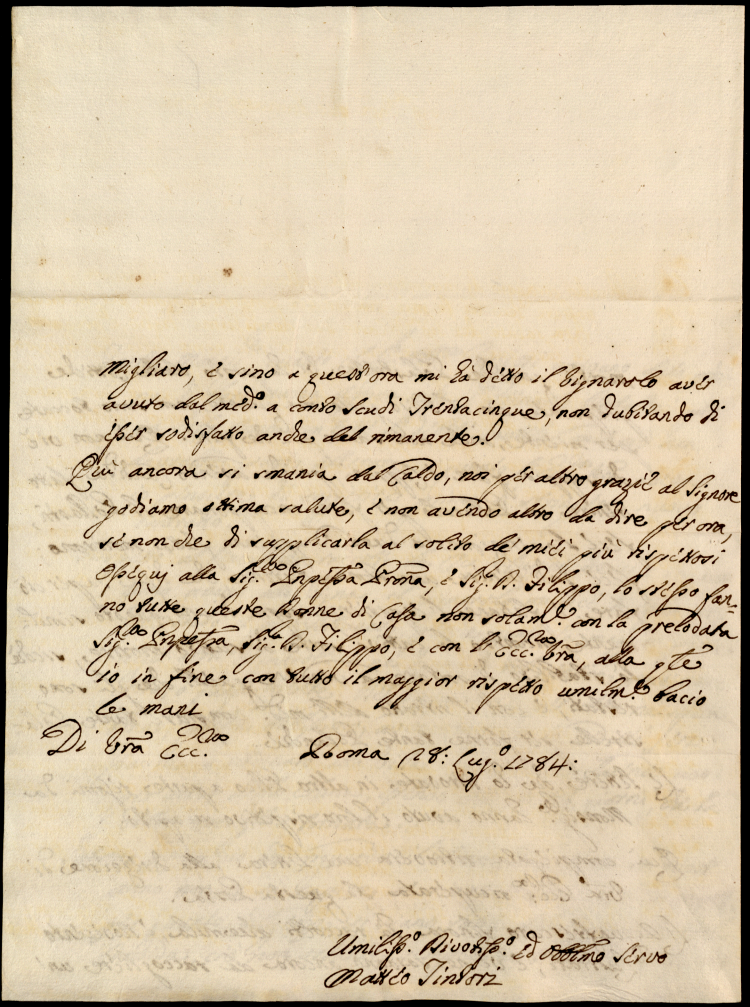 Migliaro, è sino a quest'ora mi hà detto il Vignarolo aver
avuto dal med.º a conto scudi Trentacinque, non dubitando di
esser sodisfatto anche del rimanente.
Quì ancora si smania dal Caldo, noi per altro grazie al Signore
godiamo ottima salute, è non avendo altro da dire per ora,
se non che di supplicarla al solito de miei più rispettosi
ossequj alla Sig.ra Pnpessa Prona, è Sig. D. Filippo, lo stesso fan-
no tutte queste Donne di Casa non solam.e con la prelodata
Sig.ra Pnpessa, Sig. D. Filippo, è con l'Ecc.za Vra, alla qle
io in fine con tutto il maggior rispetto umilm.e bacio
le mani
Di Vra Ecc.za Roma 28: Lug.º 1784:
Umiliss.º Divotiss.º ed Obblmo Servo
Matteo Tintori